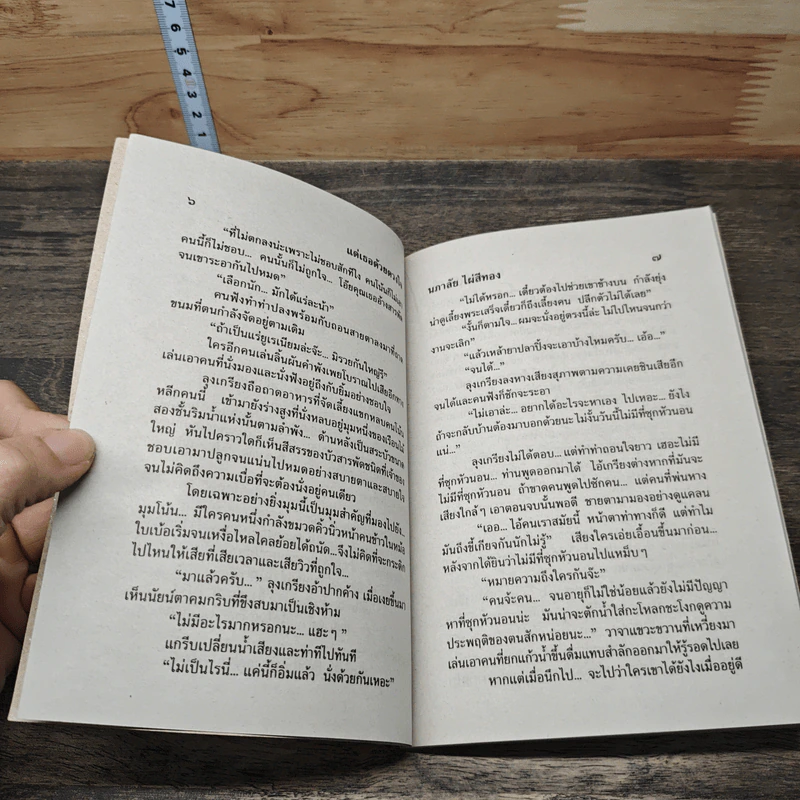 7
6
5
4
3
2
1
๖
แต่เธอด้วยดวงใจ
“ที่ไม่ตกลงน่ะเพราะไม่ชอบสักทีไง คนโน้นก็ไม่เอา
คนนี้ก็ไม่ชอบ... คนนั้นก็ไม่ถูกใจ... โอ๊ยคุณเธออ้างสารพัด
จนเขาระอากันไปหมด”
“เลือกนัก... มักได้แร่ละน้ำ”
คนฟังทำท่าปลงพร้อมกับถอนสายตาลงมาที่ถาด
ขนมที่ตนกำลังจัดอยู่ตามเดิม
“ถ้าเป็นแร่ยูเรเนียมล่ะจ๊ะ... มิรวยกันใหญ่รึ”
ใครอีกคนเล่นลิ้นผันคำพังเพยโบราณไปเสียอีกทาง
เล่นเอาคนที่นั่งมองและนั่งฟังอยู่ถึงกับยิ้มอย่างชอบใจ
ลุงเกรียงถือถาดอาหารที่จัดเลี้ยงแขกหลบคนโน้น
หลีกคนนี้ เข้ามายังร่างสูงที่นั่งหลบอยู่มุมหนึ่งของเรือนไม้
สองชั้นริมน้ำแห่งนั้นตามลำพัง... ด้านหลังเป็นสระบัวขนาด
ใหญ่ หันไปคราวใดก็เห็นสีสรรของบัวสารพัดชนิดที่เจ้าของ
ชอบเอามาปลูกจนแน่นไปหมดอย่างสบายตาและสบายใจ
จนไม่คิดถึงความเบื่อที่จะต้องนั่งอยู่คนเดียว
โดยเฉพาะอย่างยิ่งมุมนี้เป็นมุมสำคัญที่มองไปยัง...
มุมโน้น... มีใครคนหนึ่งกำลังขมวดคิ้วนิ่วหน้าคนข้าวในหม้อ
ใบเบ้อเริ่มจนเหงื่อไหลไคลย้อยได้ถนัด...จึงไม่คิดที่จะกระดิก
ไปไหนให้เสียที่เสียเวลาและเสียวิวที่ถูกใจ...
“มาแล้วครับ... ” ลุงเกรียงอ้าปากค้าง เมื่อเงยขึ้นมา
เห็นนัยน์ตาคมกริบที่ขึงสบมาเป็นเชิงห้าม
“ไม่มีอะไรมากหรอกนะ... แฮะๆ ”
แกรีบเปลี่ยนน้ำเสียงและท่าทีไปทันที
“ไม่เป็นไรนี่... แค่นี้ก็อิ่มแล้ว นั่งด้วยกันเหอะ”
๗
นภาลัย ไผ่สีทอง
“ไม่ได้หรอก... เดี๋ยวต้องไปช่วยเขาข้างบน กำลังยุ่ง
น่าดูเลี้ยงพระเสร็จเดี๋ยวก็ถึงเลี้ยงคน ปลีกตัวไม่ได้เลย”
“งั้นก็ตามใจ... ผมจะนั่งอยู่ตรงนี้ล่ะ ไม่ไปไหนจนกว่า
งานจะเลิก”
“แล้วเหล้ายาปลาปิ้งจะเอาบ้างไหมครับ... เอ้อ...”
“จนได้...”
ลุงเกรียงลงหางเสียงสุภาพตามความเคยชินเสียอีก
จนได้และคนฟังก็ชักจะระอา
“ไม่เอาล่ะ... อยากได้อะไรจะหาเอง ไปเหอะ... ยังไง
ถ้าจะกลับบ้านต้องมาบอกด้วยนะ ไม่งั้นวันนี้ไม่มีที่ซุกหัวนอน
แน่...”
ลุงเกรียงไม่ได้ตอบ... แต่ทำท่าถอนใจยาว เฮอะไม่มี
ที่ซุกหัวนอน... ท่านพูดออกมาได้ ไอ้เกรียงต่างหากที่มันจะ
ไม่มีที่ซุกหัวนอน ถ้าขาดคนพูดไปซักคน... แต่คนที่พ่นหาง
เสียงใกล้ๆ เอาตอนจบนั้นพอดี ชายตามามองอย่างดูแคลน
“เออ... ไอ้คนเราสมัยนี้ หน้าตาท่าทางก็ดี แต่ทำไม
มันถึงขี้เกียจกันนักไม่รู้” เสียงใครเอ่ยเอื้อนขึ้นมาก่อน...
หลังจากได้ยินว่าไม่มีที่ซุกหัวนอนไปแหม็บๆ
“หมายความถึงใครกันจ๊ะ”
“คนจ้ะคน... จนอายุก็ไม่ใช่น้อยแล้วยังไม่มีปัญญา
หาที่ซุกหัวนอนน่ะ มันน่าจะตักน้ำใส่กะโหลกชะโงกดูความ
ประพฤติของตนสักหน่อยนะ...” วาจาแขวะขวานที่เหวี่ยงมา
เล่นเอาคนที่ยกแก้วน้ำขึ้นดื่มแทบสำลักออกมาให้รู้รอดไปเลย
หากแต่เมื่อนึกไป... จะไปว่าใครเขาได้ยังไงเมื่ออยู่ดี